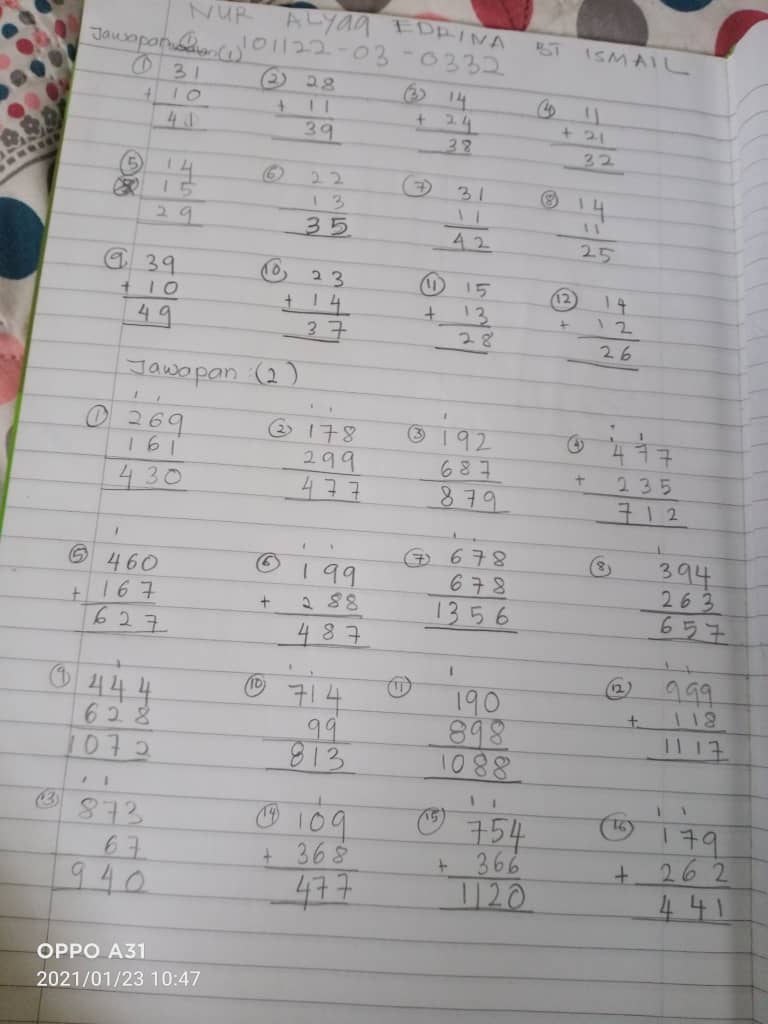 NUR ALYAA EDRINA BT ISMAIL
Jawapan (1) 101122-03-0332
① 31 ② 28 ③ 14 ④ 11
+ 10 + 11 + 24 + 21
41 39 38 32
⑤ 14 ⑥ 22 ⑦ 31 ⑧ 14
15 13 11 11
29 35 42 25
⑨ 39 ⑩ 23 ⑪ 15 ⑫ 14
+ 10 + 14 + 13 + 12
49 37 28 26
Jawapan :(2)
① 269 ② 178 ③ 192 ④ 477
161 299 687 + 235
430 477 879 712
⑤ 460 ⑥ 199 ⑦ 678 ⑧ 394
+ 167 + 288 678 263
627 487 1356 657
⑨ 444 ⑩ 714 ⑪ 190 ⑫ 999
628 99 898 + 118
1072 813 1088 1117
⑬ 873 ⑭ 109 ⑮ 754 ⑯ 179
67 + 368 + 366 + 262
940 477 1120 441
OPPO A31
2021/01/23 10:47